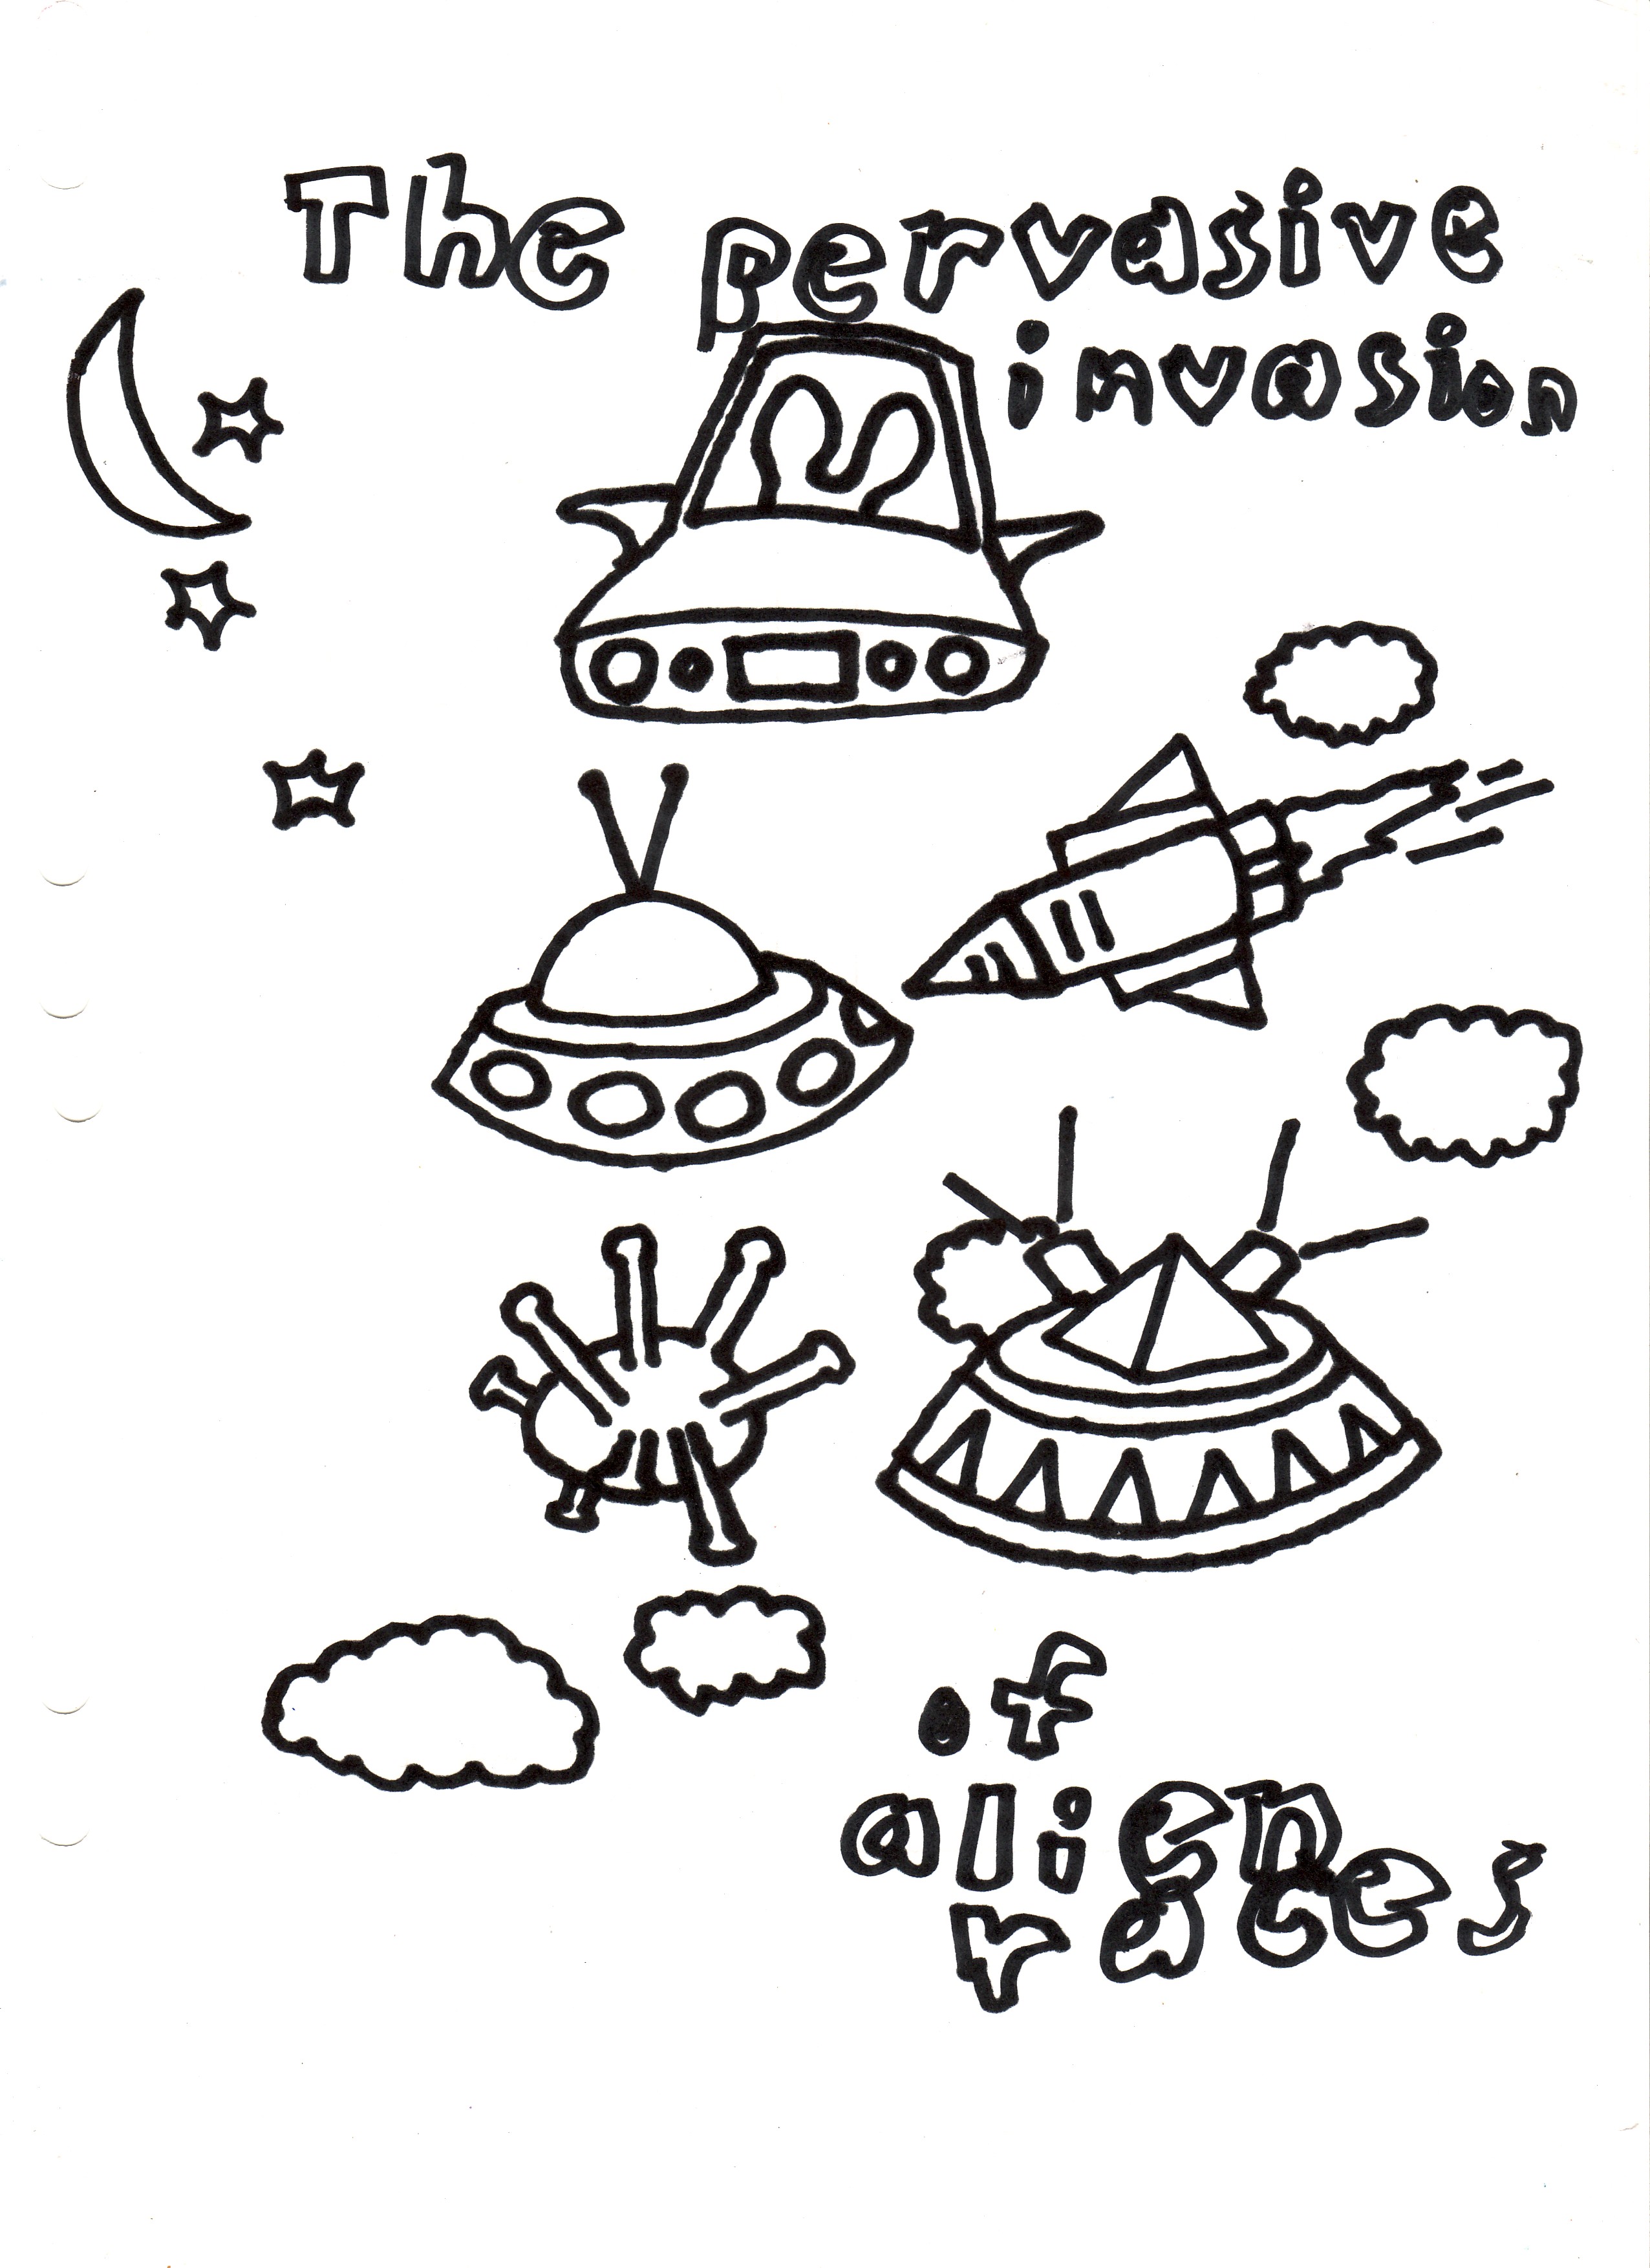 The pervasive
invasion
of
alien
races